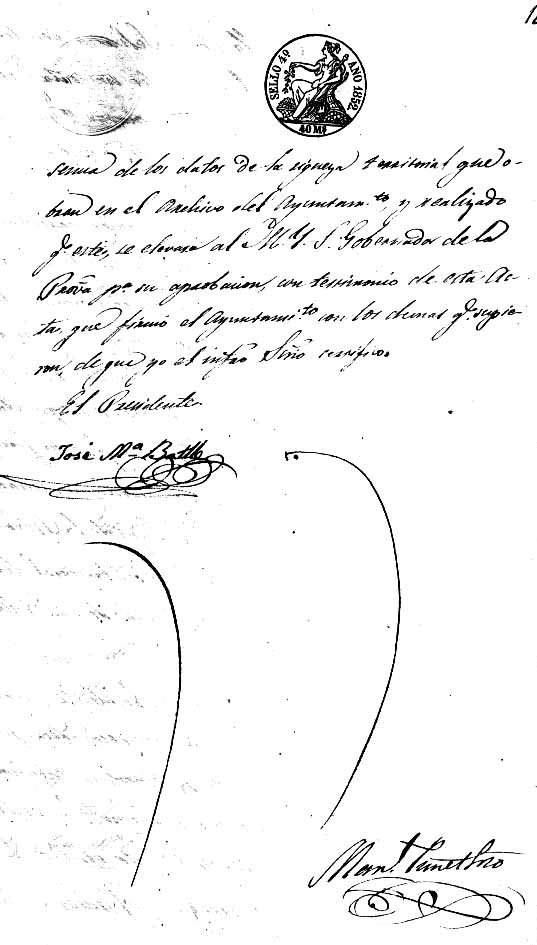 SELLO 4º AÑO 1852.
40 Ms
sencia de los datos de la riqueza territorial que o-
bran en el Archivo del Ayuntam.to, y realizado
q.e esté, se elevara al M. Y. S. Gobernador de la
Prov.a p.a su aprobacion, con testimonio de esta Ac-
ta, que firmó el Ayuntami.to con los demas q.e supie-
ron, de que yo el infro Srio certifico.
El Presidente
José M.a Batlle
Man.l